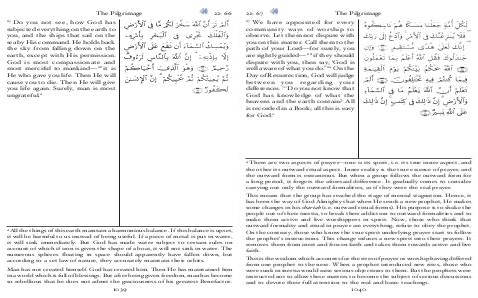 The Pilgrimage 22: 66
⁶⁵ Do you not see, how God has
subjected everything on the earth to
you, and the ships that sail on the
sea by His command. He holds back
the sky from falling down on the
earth, except with His permission.
God is most compassionate and
most merciful to mankind—⁶⁶ it is
He who gave you life. Then He will
cause you to die. Then He will give
you life again. Surely, man is most
ungrateful.ᵃ
أَلَمْ تَرَ أَنَّ اللَّهَ سَخَّرَ لَكُم مَّا فِي الْأَرْضِ
وَالْفُلْكَ تَجْرِي فِي الْبَحْرِ بِأَمْرِهِ
وَيُمْسِكُ السَّمَاءَ أَن تَقَعَ عَلَى الْأَرْضِ
إِلَّا بِإِذْنِهِ إِنَّ اللَّهَ بِالنَّاسِ لَرَءُوفٌ
رَّحِيمٌ وَهُوَ الَّذِي أَحْيَاكُمْ
ثُمَّ يُمِيتُكُمْ ثُمَّ يُحْيِيكُمْ إِنَّ الْإِنسَانَ
لَكَفُورٌ
ᵃ All the things of this earth maintain a harmonious balance. If this balance is upset,
it will be harmful to us instead of being useful. If a piece of metal is put in water,
it will sink immediately. But God has made water subject to certain rules on
account of which if iron is given the shape of a boat, it will not sink in water. The
numerous spheres floating in space should apparently have fallen down, but
according to a set law of nature, they accurately maintain their orbits.
Man has not created himself. God has created him. Then He has maintained him
in a world which is full of blessings. But after being given freedom, man has become
so rebellious that he does not admit the graciousness of his greatest Benefactor.
1039
22: 67 The Pilgrimage
⁶⁷ We have appointed for every
community ways of worship to
observe. Let them not dispute with
you on this matter. Call them to the
path of your Lord—for surely, you
are rightly guided—⁶⁸ if they should
dispute with you, then say, 'God is
well aware of what you do.' ⁶⁹ On the
Day of Resurrection, God will judge
between you regarding your
differences. ⁷⁰ Do you not know that
God has knowledge of what the
heavens and the earth contain? All
is recorded in a Book; all this is easy
for God.ᵃ
لِّكُلِّ أُمَّةٍ جَعَلْنَا مَنسَكًا هُمْ نَاسِكُوهُ
فَلَا يُنَازِعُنَّكَ فِي الْأَمْرِ وَادْعُ إِلَى رَبِّكَ
إِنَّكَ لَعَلَى هُدًى مُّسْتَقِيمٍ وَإِن
جَادَلُوكَ فَقُلِ اللَّهُ أَعْلَمُ بِمَا تَعْمَلُونَ
اللَّهُ يَحْكُمُ بَيْنَكُمْ يَوْمَ الْقِيَامَةِ
فِيمَا كُنتُمْ فِيهِ تَخْتَلِفُونَ أَلَمْ
تَعْلَمْ أَنَّ اللَّهَ يَعْلَمُ مَا فِي السَّمَاءِ
وَالْأَرْضِ إِنَّ ذَلِكَ فِي كِتَابٍ إِنَّ ذَلِكَ
عَلَى اللَّهِ يَسِيرٌ
ᵃ There are two aspects of prayer—one is its spirit, i.e. its true inner aspect, and
the other is its outward ritual aspect. Inner reality is the true essence of prayer, and
the outward form is extraneous. But when a group follows the outward form for
a long period, it forgets the aforesaid difference. It gradually comes to consider
carrying out only the outward formalities, as if they were the real prayer.
This means that the group has reached the stage of mental stagnation. Hence, it
has been the way of God Almighty that when He sends a new prophet, He makes
some changes in his shariah (i.e. outward ritual form). His purpose is to shake the
people out of their inertia, to break their addiction to outward formalities and to
make them active and live worshippers in spirit. Now, those who think that
outward formality and ritual in prayer are everything, refuse to obey the prophet.
On the contrary, those who know the true spirit underlying prayer start to follow
the prophet's instructions. This change infuses a new spirit into their prayers. It
removes them from inert and frozen faith and raises them towards active and live
faith.
This is the wisdom which accounts for the rites of prayer or worship having differed
from one prophet to the other. When a prophet introduced new rites, those who
were stuck in inertia would raise serious objections to them. But the prophets were
instructed not to allow these matters to become the subject of serious discussions
and to devote their full attention to the real and basic teachings.
1040